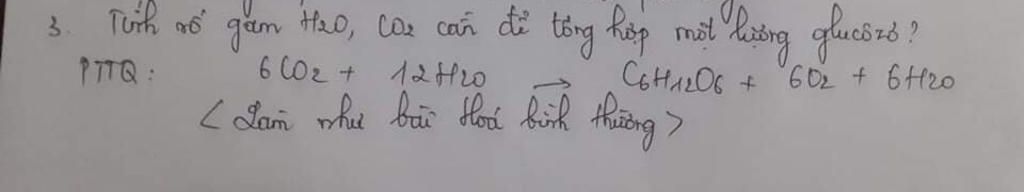 3. Tính số gam H2O, CO2 cần để tổng hợp một lượng glucôzơ?
PTTQ: 6CO2 + 12H2O → C6H12O6 + 6O2 + 6H2O
< Làm như bài Hoá bình thường >